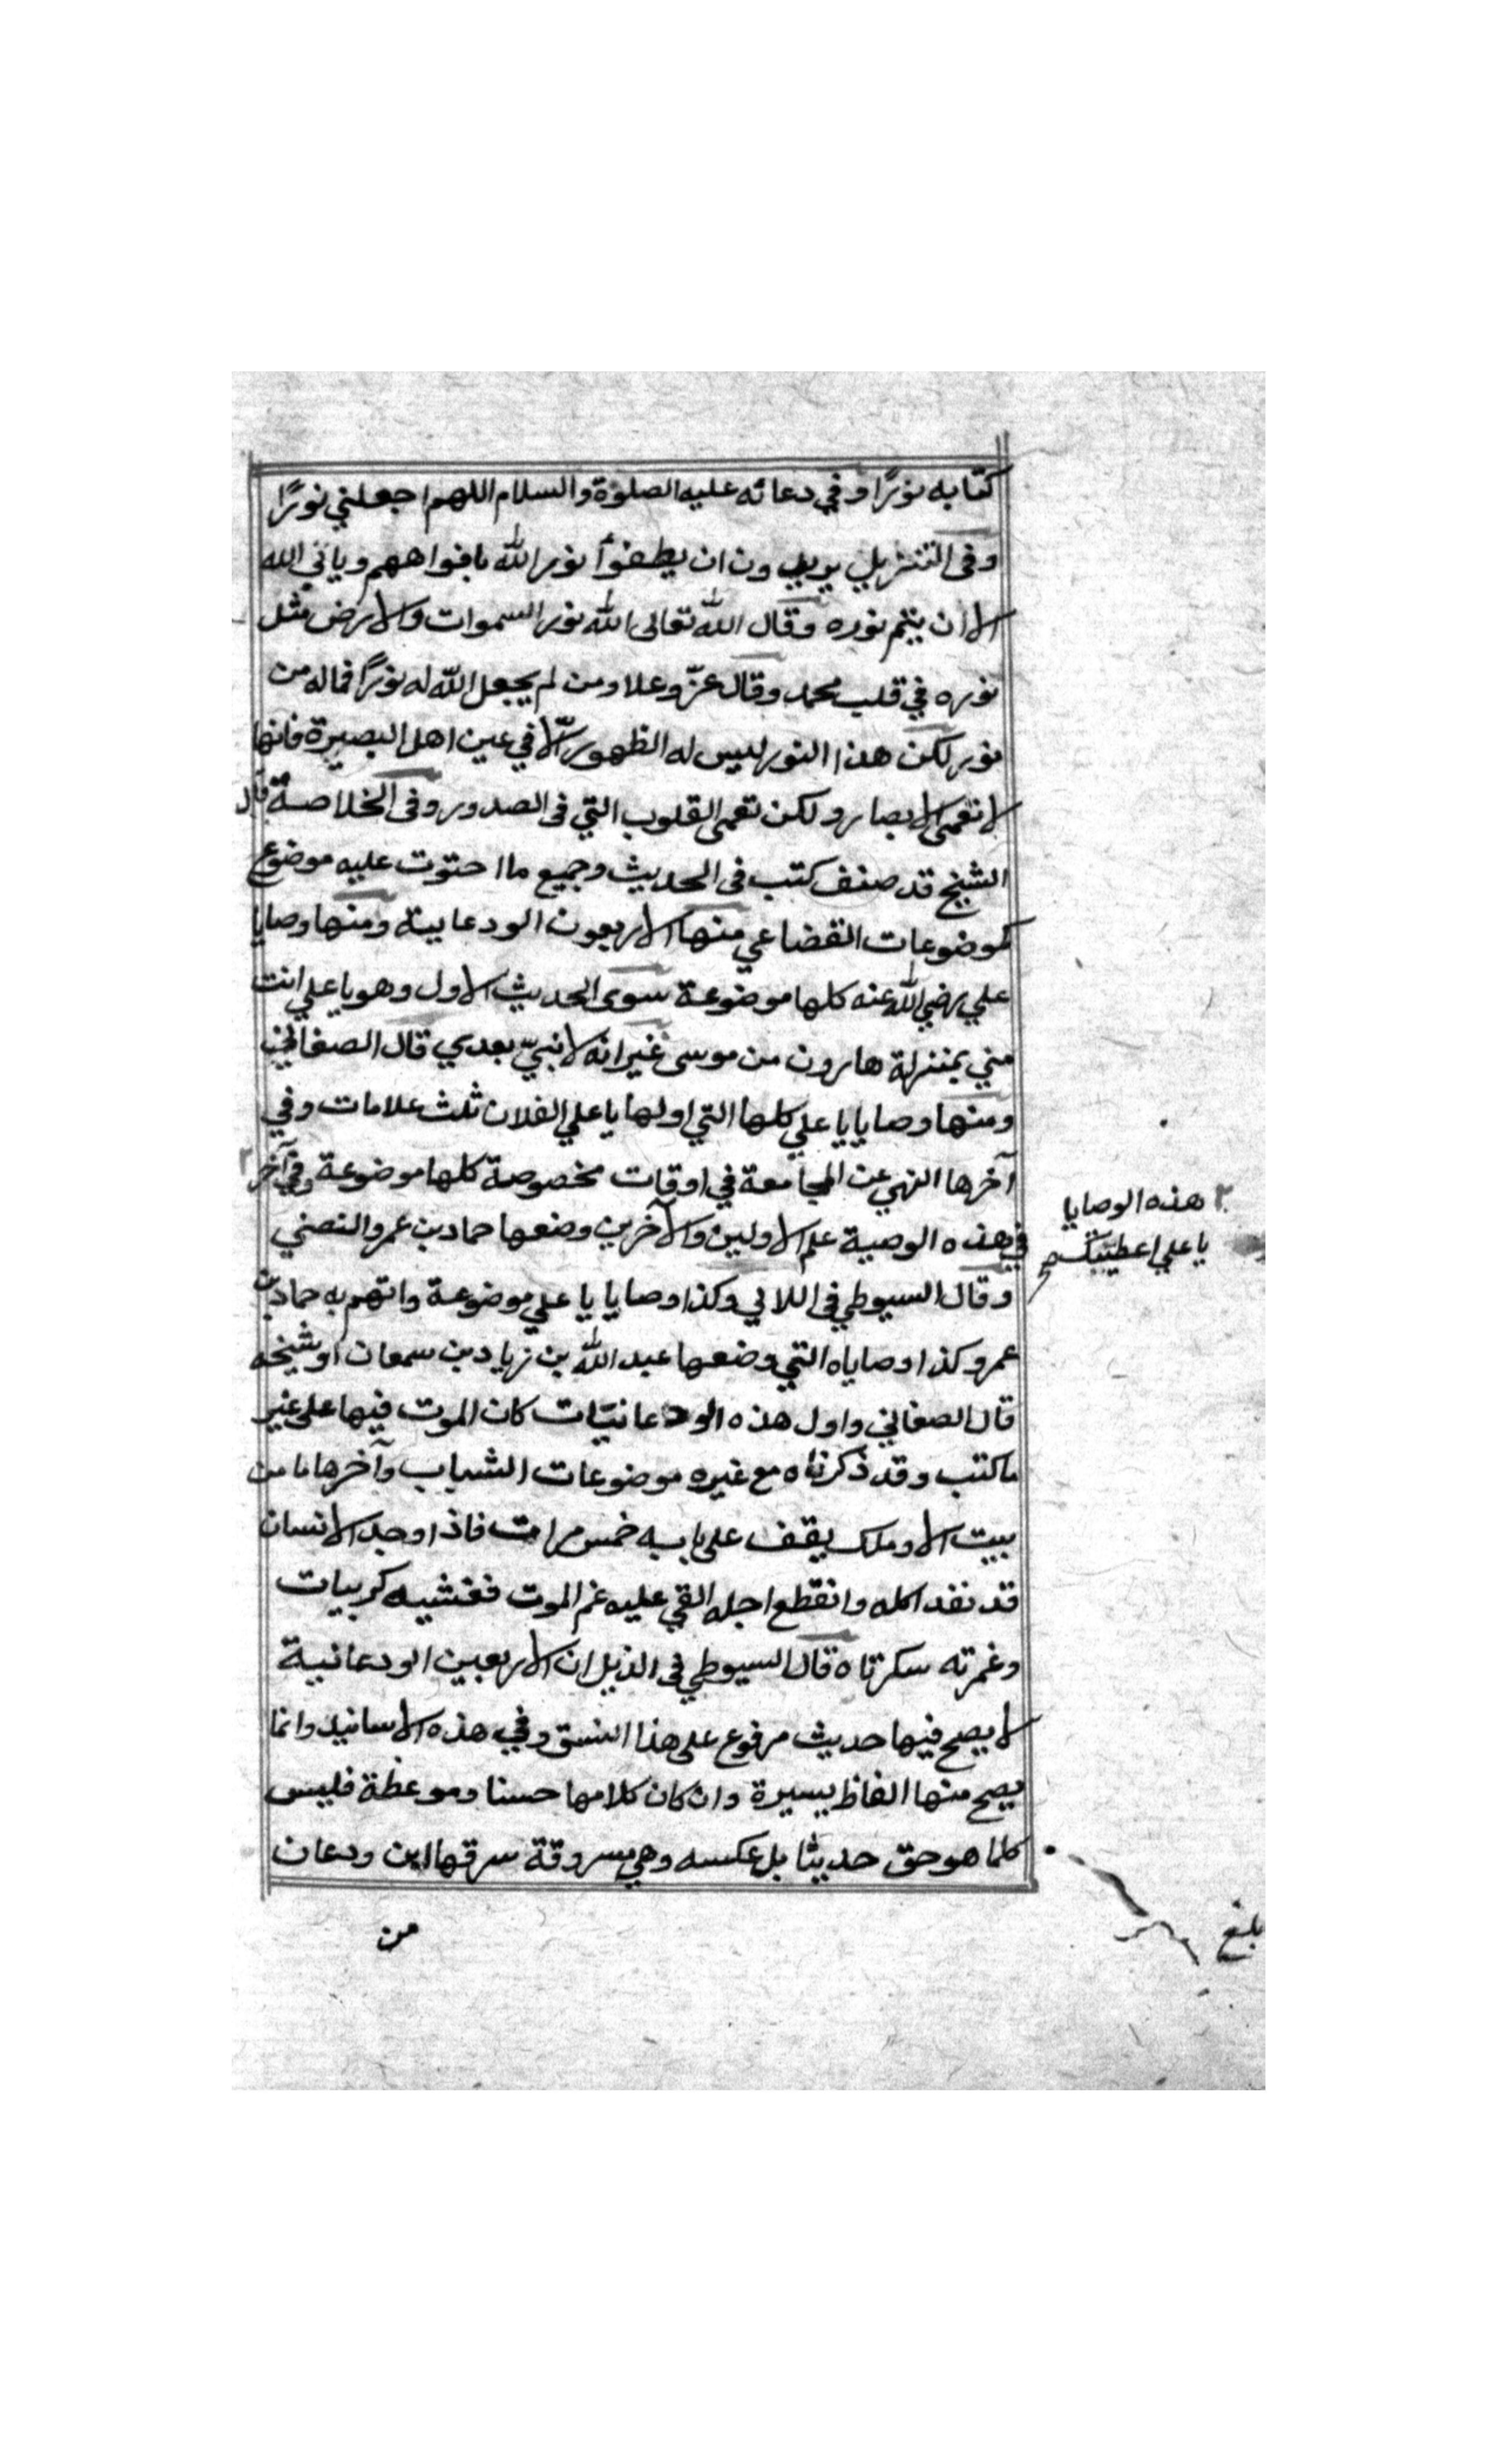 كتابه نورًا وفي دعائه عليه الصلوة والسلام اللهم اجعلني نورًا
وفى التنزيل يريدون ان يطفئوا نور الله بافواههم ويأبى الله
الا ان يتم نوره وقال الله تعالى الله نور السموات والارض مثل
نوره في قلب محمد وقال عزّ وعلا ومن لم يجعل الله له نورًا فماله من
نور لكن هذا النور ليس له الظهور الّا في عين اهل البصيرة فانها
لا تعمى الابصار ولكن تعمى القلوب التي فى الصدور وفى الخلاصة قال
الشيخ قد صنف كتب فى الحديث وجميع ما احتوت عليه موضوع
كموضوعات القضاعي منها الاربعون الودعانية ومنها وصايا
علي رضي الله عنه كلها موضوعة سوى الحديث الاول وهو يا علي انت
مني بمنزلة هارون من موسى غير انه لا نبيّ بعدي قال الصغاني
ومنها وصايا يا علي كلها التي اولها يا علي لفلان ثلث علامات وفي
آخرها النهي عن المجامعة في اوقات مخصوصة كلها موضوعة وفي آخر ٢
في هذه الوصية علم الاولين والآخرين وضعها حماد بن عمرو النصني
وقال السيوطي فى اللالي وكذا وصايا يا علي موضوعة واتهم به حماد بن
عمرو كذا وصاياه التي وضعها عبد الله بن زياد بن سمعان او شيخه
قال الصغاني واول هذه الودعانيّات كان الموت فيها على غير
ما كتب وقد ذكرناه مع غيره موضوعات الشهاب وآخرها ما من
بيت الا وملك يقف على بابه خمس مرات فاذا وجد الانسان
قد نفد اكله وانقطع اجله القي عليه غم الموت فغشيه كربيات
وغمرته سكرتاه قال السيوطي فى الذيل ان الاربعين الودعانية
لا يصح فيها حديث مرفوع على هذا النسق وفي هذه الاسانيد وانما
يصح منها الفاظ يسيرة وان كان كلامها حسنا وموعظة فليس
كلما هو حق حديثا بل عكسه وهي مسروقة سرقها ابن ودعان
من
٢ هذه الوصايا
يا علي اعطيتك صح
بلغ